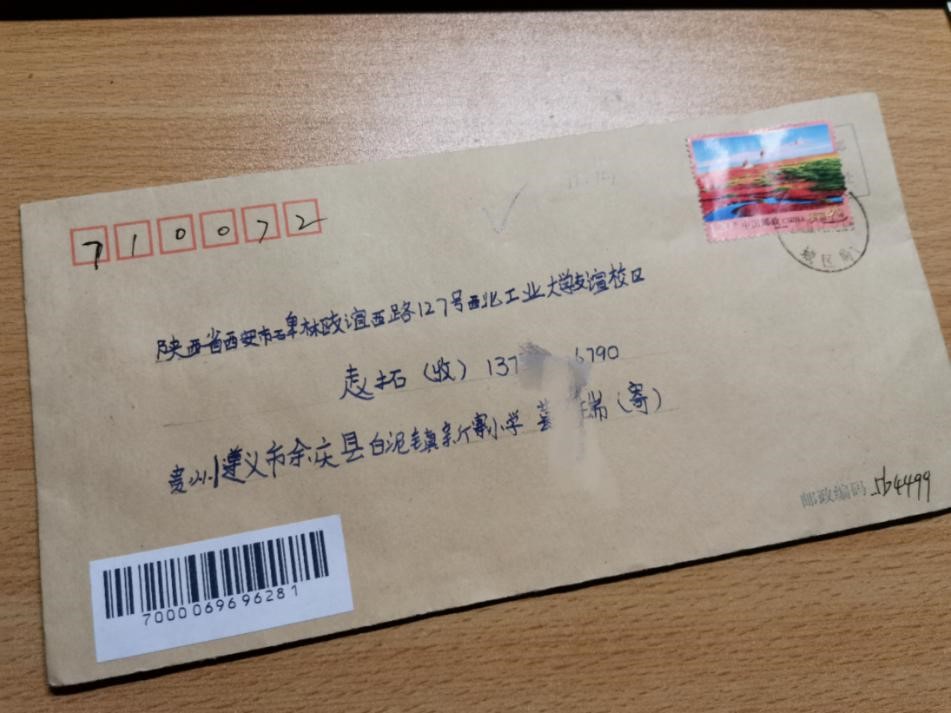 710072
陕西省西安市碑林区友谊西路127号西北工业大学友谊校区
赵拓（收）137 6790
贵州遵义市余庆县白泥镇新寨小学 瑞（寄）
邮政编码 564499
中国邮政 CHINA
7000069696281